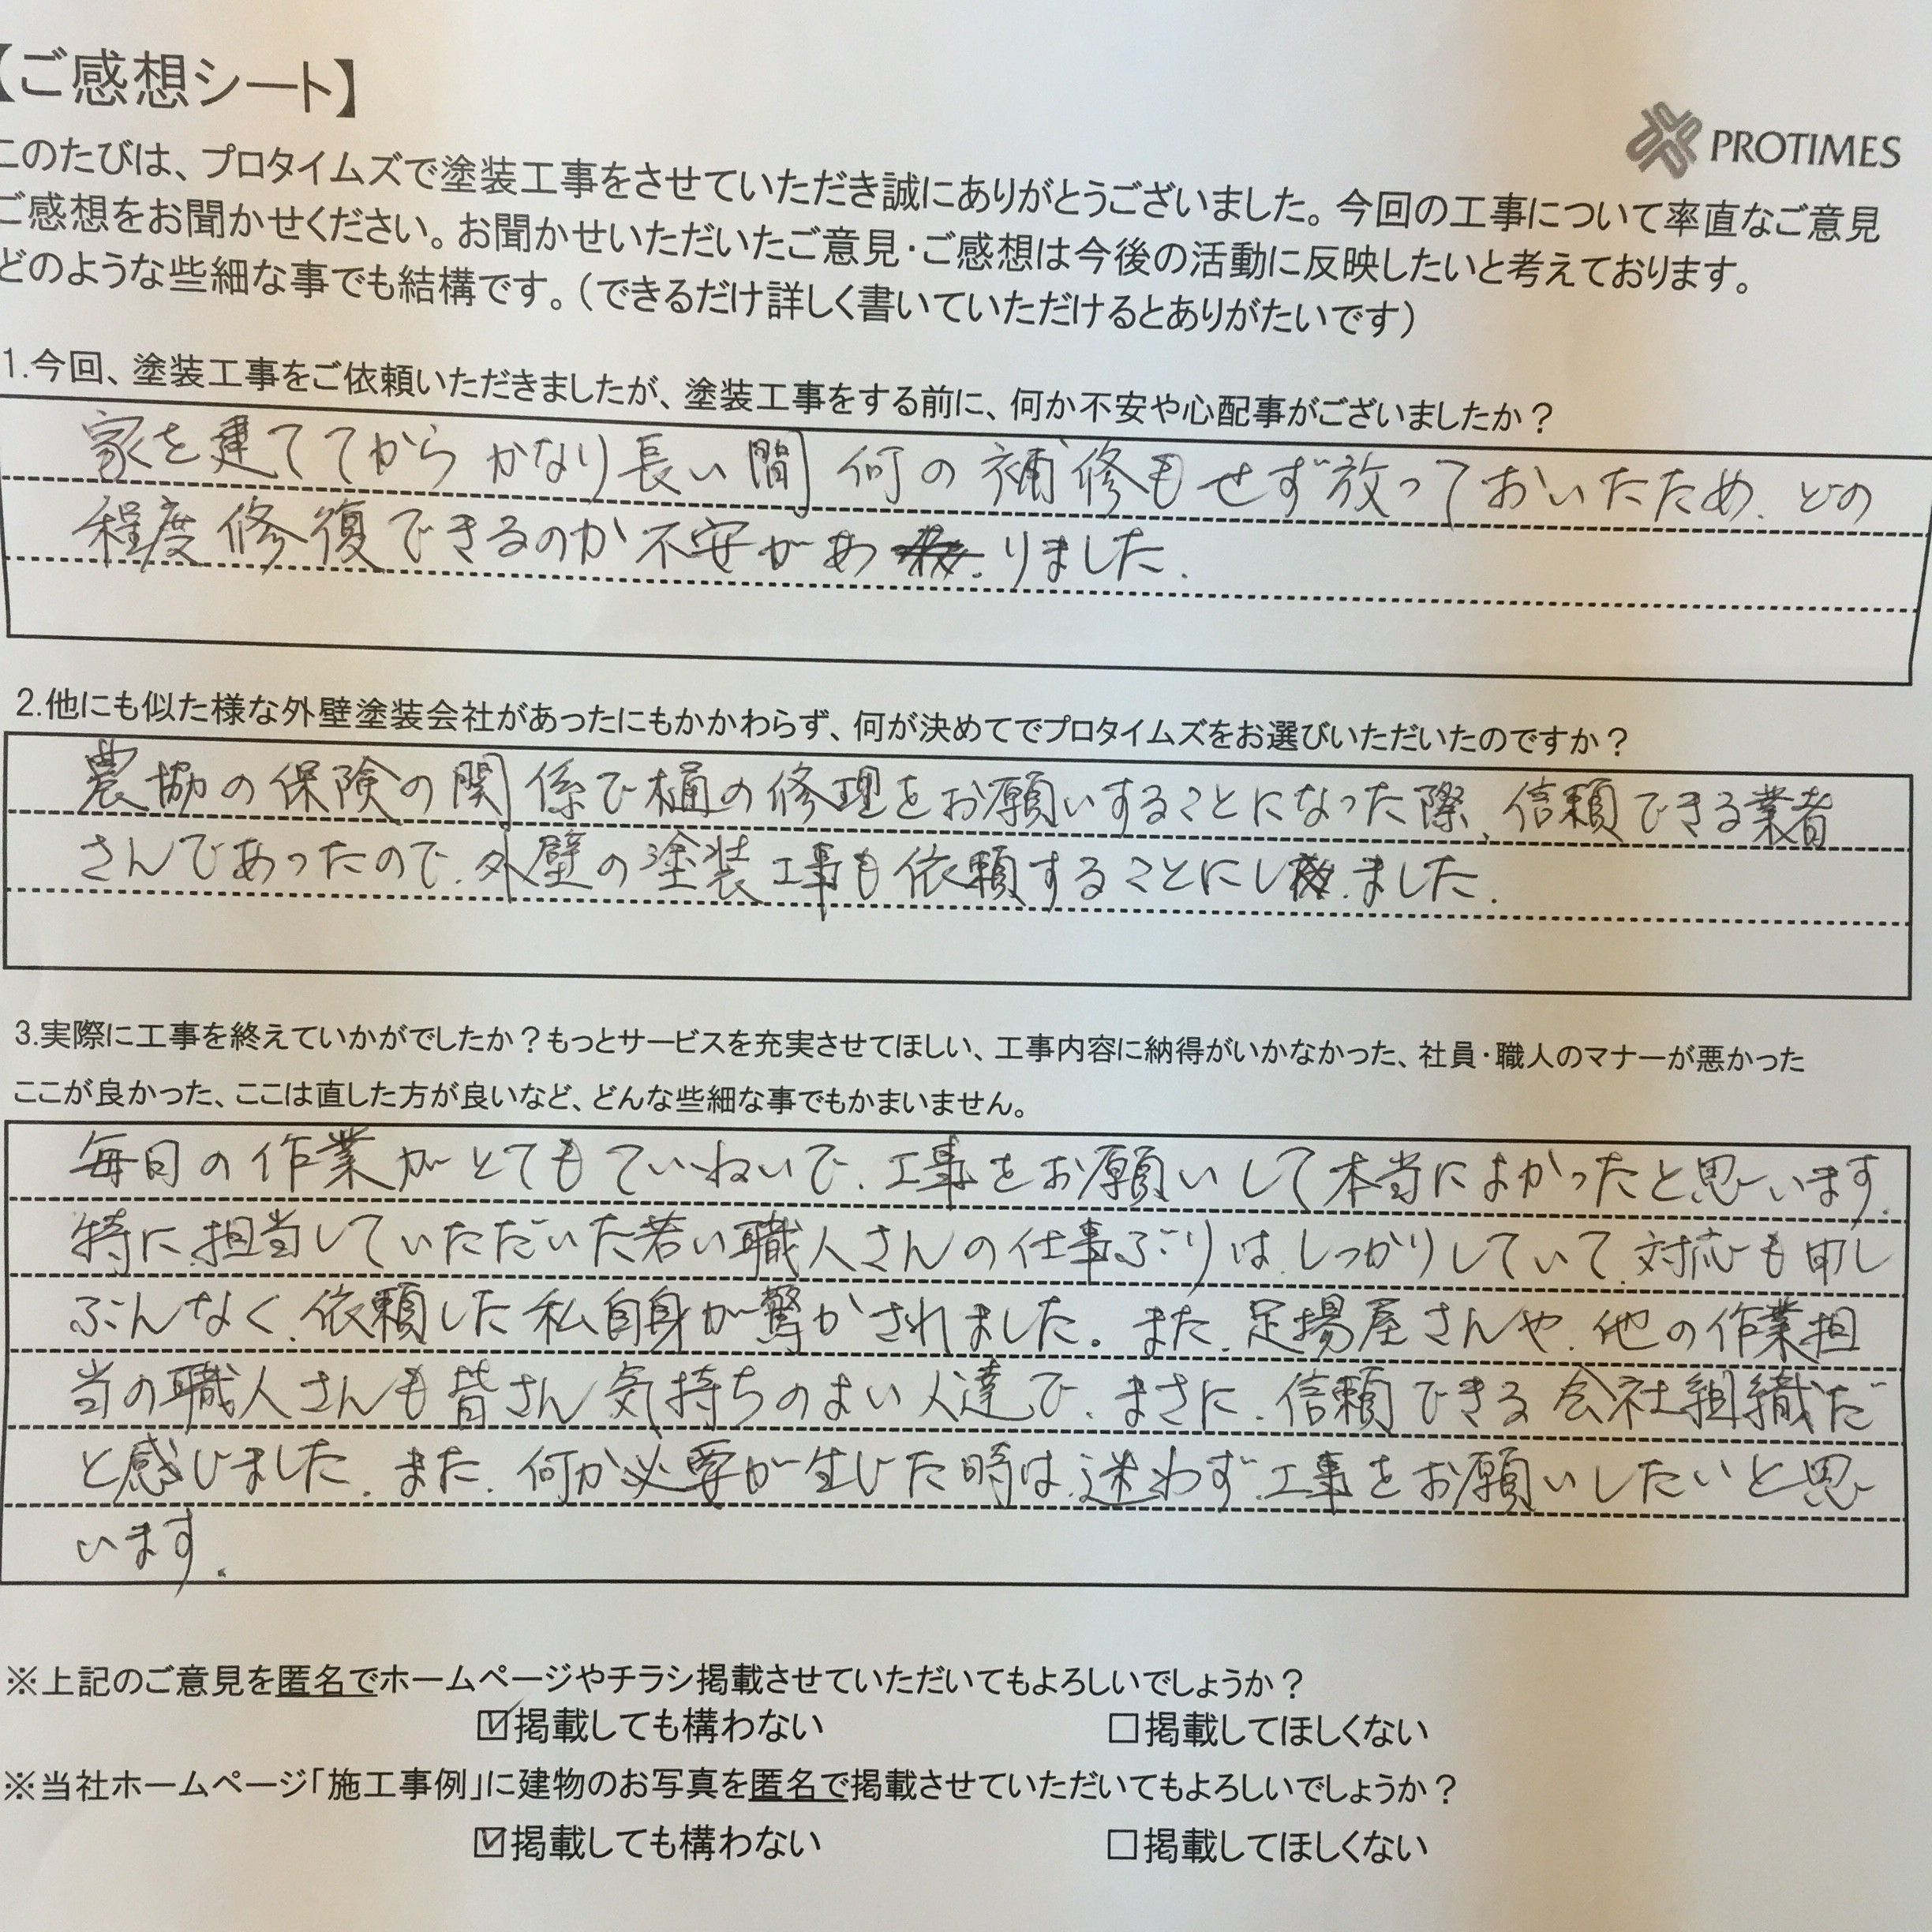 【ご感想シート】
PROTIMES
このたびは、プロタイムズで塗装工事をさせていただき誠にありがとうございました。今回の工事について率直なご意見
ご感想をお聞かせください。お聞かせいただいたご意見・ご感想は今後の活動に反映したいと考えております。
どのような些細な事でも結構です。(できるだけ詳しく書いていただけるとありがたいです)
1.今回、塗装工事をご依頼いただきましたが、塗装工事をする前に、何か不安や心配事がございましたか?
家を建ててから かなり長い間 何の補修もせず放っておいたため、どの
程度修復できるのか不安があ りました.
2.他にも似た様な外壁塗装会社があったにもかかわらず、何が決めてでプロタイムズをお選びいただいたのですか?
農協の保険の関係で樋の修理をお願いすることになった際、信頼できる業者
さんであったので、外壁の塗装工事も依頼することにし ました.
3.実際に工事を終えていかがでしたか?もっとサービスを充実させてほしい、工事内容に納得がいかなかった、社員・職人のマナーが悪かった
ここが良かった、ここは直した方が良いなど、どんな些細な事でもかまいません。
毎日の作業がとてもていねいで、工事をお願いして本当によかったと思います.
特に、担当していただいた若い職人さんの仕事ぶりは、しっかりしていて、対応も申し
ぶんなく、依頼した私自身が驚かされました。また、足場屋さんや、他の作業担
当の職人さんも皆さん気持ちのよい人達で、まさに、信頼できる会社組織だ
と感じました. また、何か必要が生じた時は、迷わず、工事をお願いしたいと思
います.
※上記のご意見を匿名でホームページやチラシ掲載させていただいてもよろしいでしょうか?
☑掲載しても構わない □掲載してほしくない
※当社ホームページ「施工事例」に建物のお写真を匿名で掲載させていただいてもよろしいでしょうか?
☑掲載しても構わない □掲載してほしくない